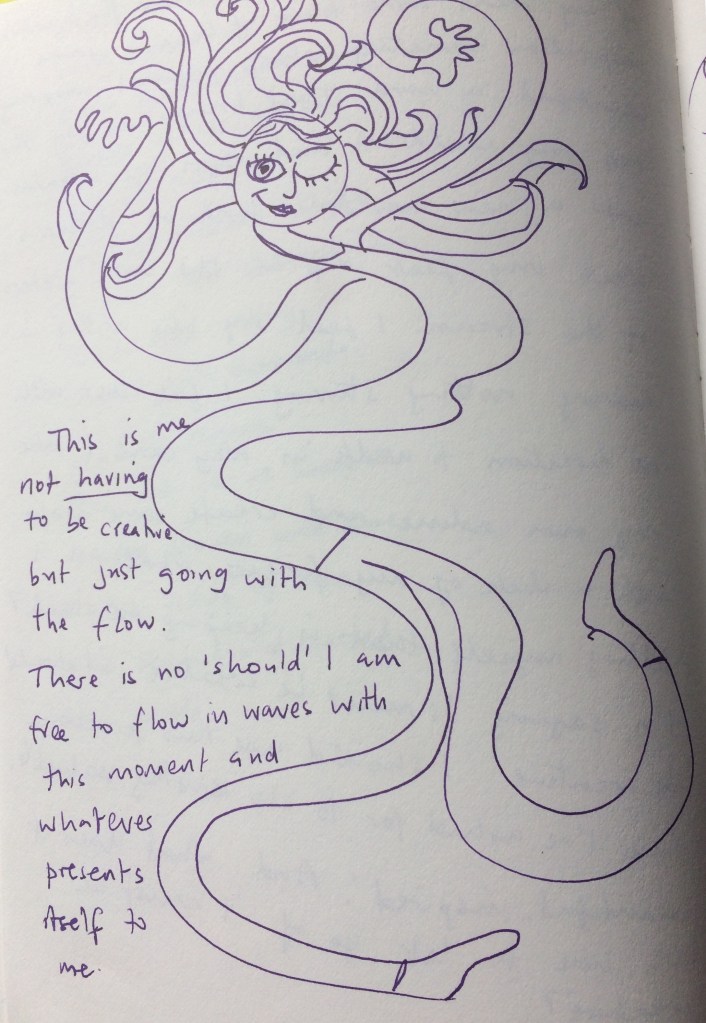 This is me
not having
to be creative
but just going with
the flow.
There is no 'should' I am
free to flow in waves with
this moment and
whatever
presents
itself to
me.